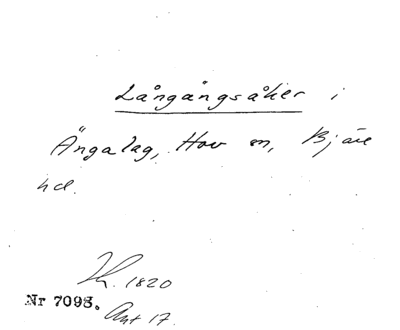 Långångsåker i
Ängalag, Hov sn, Bjäre
hd.
1820
Nr 7093.
Avt 17.